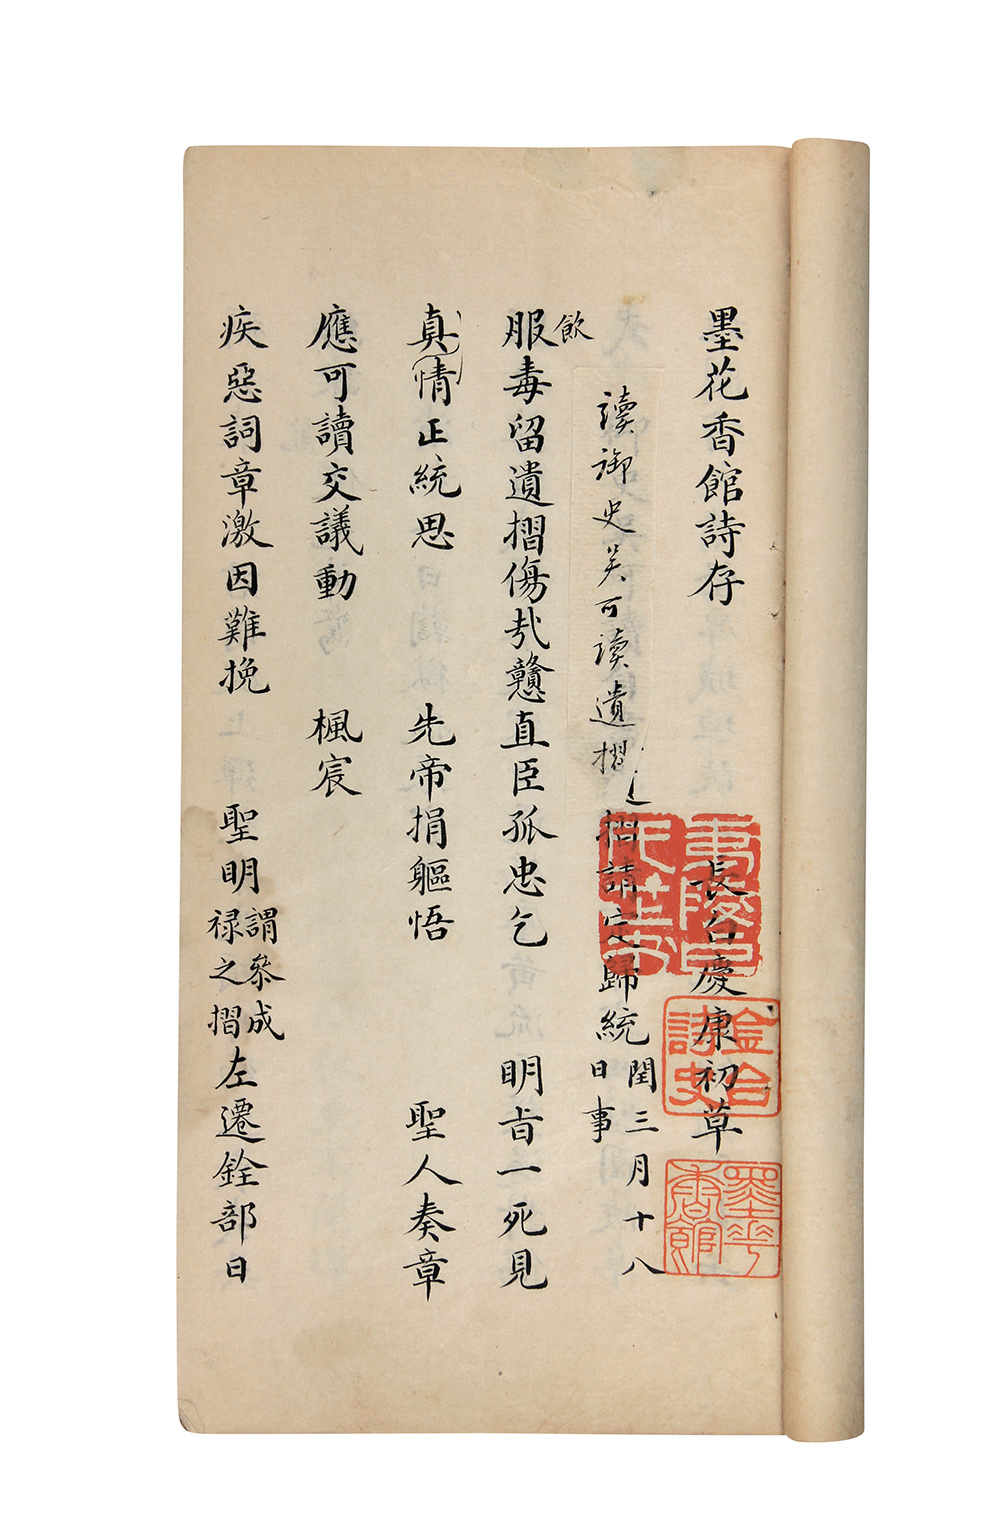 墨花香館詩存
長白慶康初草
讀御史吴可读遺摺
摺請定歸統閏三月十八日事
飲
服毒留遺摺傷哉戇直臣孤忠乞 明旨一死見
真情正統思 先帝捐軀悟 聖人奏章
應可讀交議動 楓宸
疾惡詞章激因難挽 聖明謂參成禄之摺左遷銓部日
墨花香館